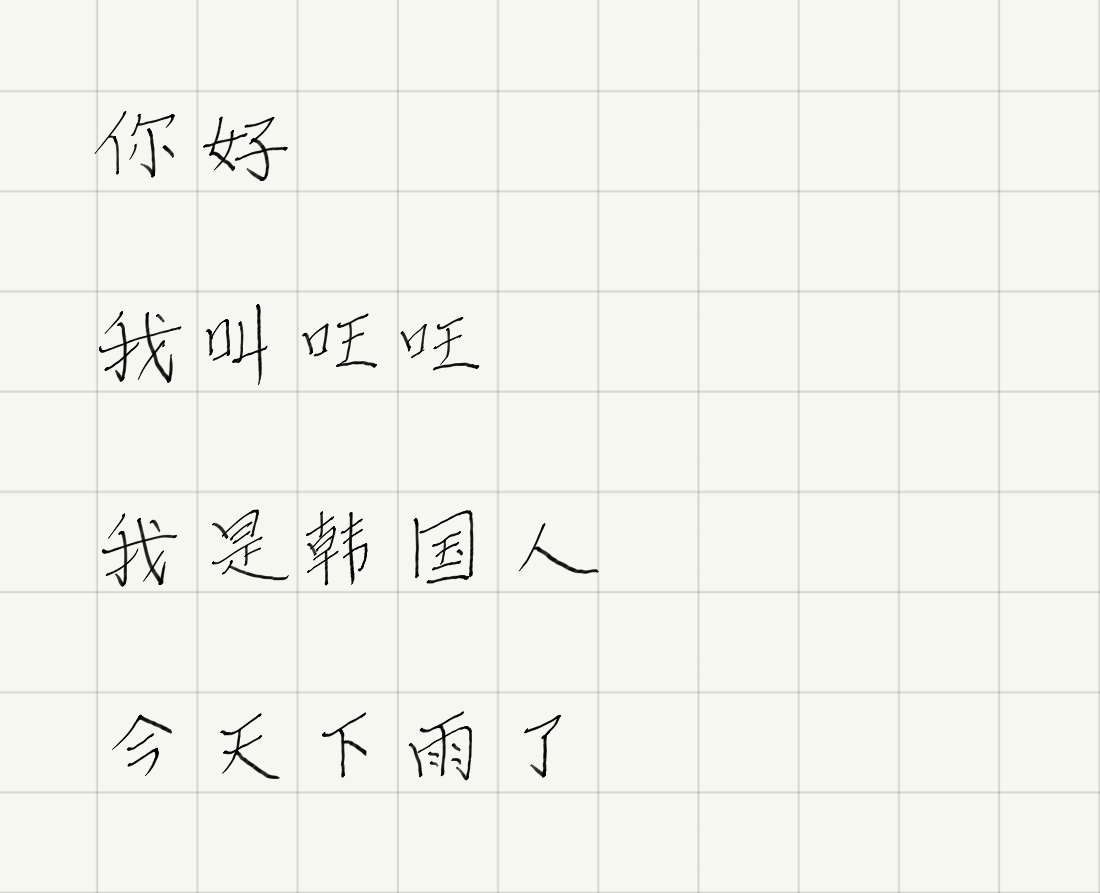 你好
我叫旺旺
我是韩国人
今天下雨了